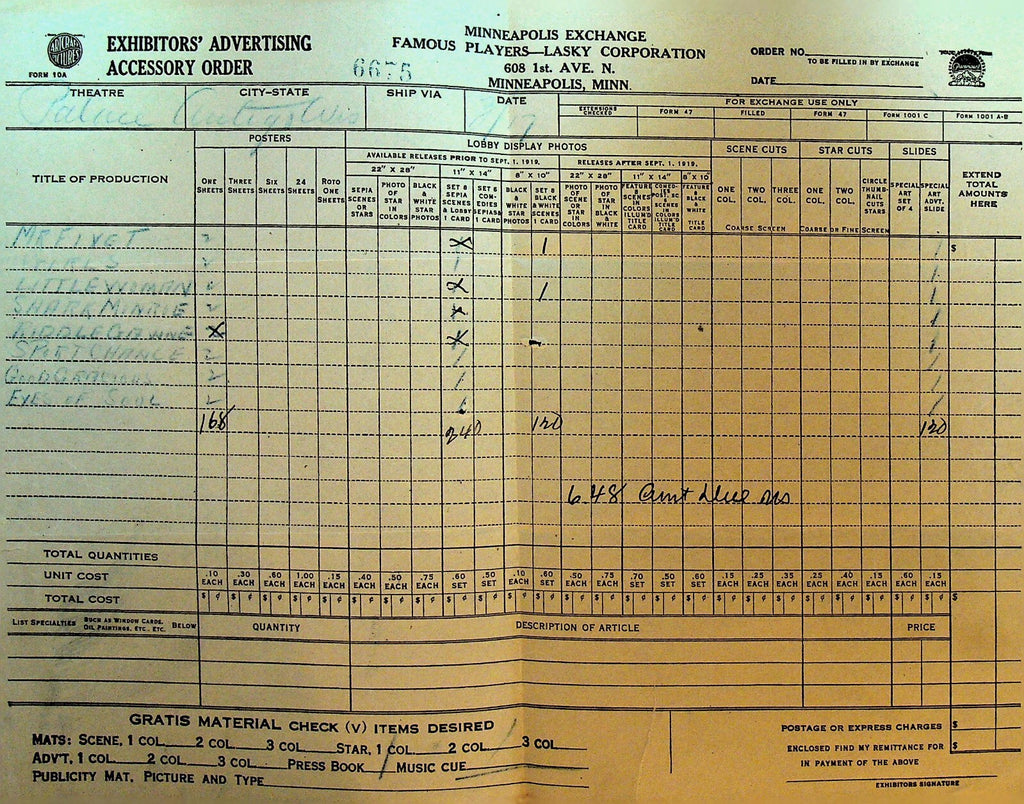 ARTCRAFT PICTURES
FORM 10A
EXHIBITORS' ADVERTISING
ACCESSORY ORDER
6675
MINNEAPOLIS EXCHANGE
FAMOUS PLAYERS—LASKY CORPORATION
608 1st. AVE. N.
MINNEAPOLIS, MINN.
ORDER NO.
TO BE FILLED IN BY EXCHANGE
DATE
Paramount
THEATRE CITY-STATE SHIP VIA DATE
Palace Antigo Wis
FOR EXCHANGE USE ONLY
EXTENSIONS CHECKED FORM 47 FILLED FORM 47 FORM 1001 C FORM 1001 A-B
TITLE OF PRODUCTION
POSTERS
ONE SHEETS THREE SHEETS SIX SHEETS 24 SHEETS ROTO ONE SHEETS
LOBBY DISPLAY PHOTOS
AVAILABLE RELEASES PRIOR TO SEPT. 1. 1919. RELEASES AFTER SEPT. 1. 1919.
22" X 28" 11" X 14" 8" X 10" 22" X 28" 11" X 14" 8" X 10"
SEPIA SCENES OR STARS
PHOTO OF STAR IN COLORS
BLACK & WHITE STAR PHOTOS
SET 8 SEPIA SCENES & LOBBY 1 CARD
SET 6 COMEDIES SEPIAS 1 CARD
BLACK & WHITE STAR PHOTOS
SET 8 BLACK & WHITE SCENES 1 CARD
PHOTO OF SCENE OR STAR IN COLORS
PHOTO OF STAR IN BLACK & WHITE
FEATURE 8 SCENES IN COLORS ILLUM'D TITLE CARD
FEATURE 8 BLACK & WHITE TITLE CARD
SCENE CUTS STAR CUTS SLIDES
ONE COL. TWO COL. THREE COL.
COARSE SCREEN
ONE COL. TWO COL. CIRCLE THUMB-NAIL CUTS STARS
COARSE OR FINE SCREEN
SPECIAL ART SET OF 4 SPECIAL ART ADVT. SLIDE
EXTEND TOTAL AMOUNTS HERE
2 X 1 1 $
2 1 1
LITTLE WOMAN X 1 1
2 X 1
X X 1
SPORT CHANCE 2 1 1
GOOD GRACIOUS 2 1 1
EYES OF SOUL 2 1 1
168 240 120 120
6.48 Amt due us
TOTAL QUANTITIES
UNIT COST .10 EACH .30 EACH .60 EACH 1.00 EACH .15 EACH .40 EACH .50 EACH .75 EACH .60 SET .50 SET .10 EACH .60 SET .50 EACH .75 EACH .70 SET .50 SET .60 SET .15 EACH .25 EACH .35 EACH .25 EACH .40 EACH .15 EACH .60 SET .15 EACH
TOTAL COST $ ¢ $ ¢ $ ¢ $ ¢ $ ¢ $ ¢ $ ¢ $ ¢ $ ¢ $ ¢ $ ¢ $ ¢ $ ¢ $ ¢ $ ¢ $ ¢ $ ¢ $ ¢ $ ¢ $ ¢ $ ¢ $ ¢ $ ¢ $ ¢ $ ¢ $
LIST SPECIALTIES SUCH AS WINDOW CARDS, OIL PAINTINGS, ETC., ETC. BELOW QUANTITY DESCRIPTION OF ARTICLE PRICE
GRATIS MATERIAL CHECK (V) ITEMS DESIRED
MATS: SCENE, 1 COL. 2 COL. 3 COL. STAR, 1 COL. 2 COL. 3 COL.
ADV'T, 1 COL. 2 COL. 3 COL. PRESS BOOK MUSIC CUE
PUBLICITY MAT, PICTURE AND TYPE
POSTAGE OR EXPRESS CHARGES $
ENCLOSED FIND MY REMITTANCE FOR $
IN PAYMENT OF THE ABOVE
EXHIBITORS SIGNATURE